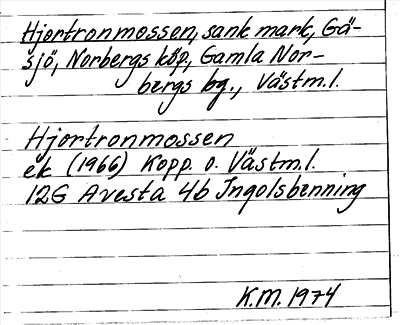 Hjortronmossen, sank mark, Gä-
sjö, Norbergs köp., Gamla Nor-
bergs bg., Västm.l.
Hjortronmossen
ek (1966) Kopp. o. Västm.l.
12G Avesta 4b Ingolsbenning
K.M. 1974